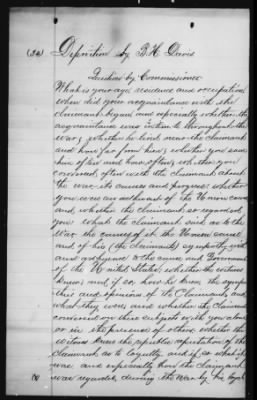 (32) Deposition by B. H. Davis
Question by Commissioner
What is your age, residence and occupation
when did your acquaintance with the
claimant begin and especially whether the
acquaintance was intimate throughout the
war, whether he lived near the claimant
and how far from him, whether you saw
him often and how often, whether you
conversed often with the claimant about
the war its causes and progress whether
you were an adherent of the Union cause
and whether the claimant so regarded
you, what the claimant said as to the
war the causes of it the Union cause
and of his (the claimants) sympathy with
and adherence to the cause and Government
of the United States, whether the witness
knew and if so, how he knew the sympa-
thies and opinions of the Claimants and
what they were and whether the claimant
conversed on these subjects with you alone
or in the presence of others whether the
witness knew the public reputation of the
claimant as to loyalty and if so what it
was and especially how the claimant
was regarded during the war by his loyal